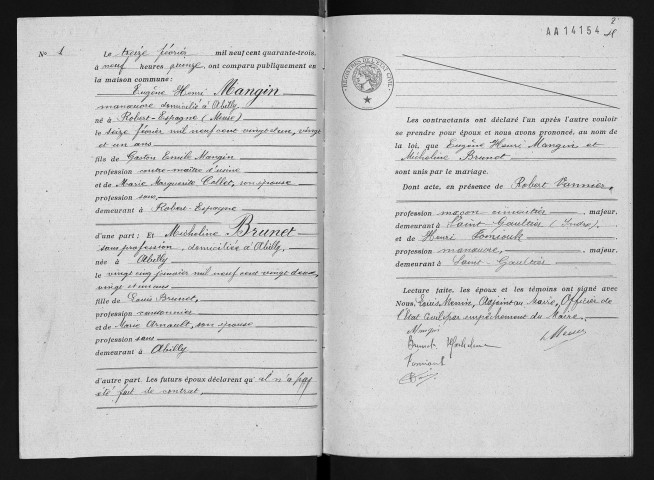 N° 1
Le treize février mil neuf cent quarante-trois,
à neuf heures quinze, ont comparu publiquement en
la maison commune:
Eugène Henri Mangin
manœuvre domicilié à Abilly
né à Robert-Espagne (Meuse)
le seize février mil neuf cent vingt deux, vingt
et un ans
fils de Gaston Emile Mangin
profession contre-maître d'usine
et de Marie Marguerite Collet, son épouse
profession sans
demeurant à Robert-Espagne
d'une part; Et Micheline Brunet
sans profession, domiciliée à Abilly,
née à Abilly
le vingt cinq janvier mil neuf cent vingt deux,
vingt et un ans
fille de Louis Brunet,
profession cantonnier
et de Marie Arnault, son épouse
profession sans
demeurant à Abilly
d'autre part. Les futurs époux déclarent qu'il n'a pas
été fait de contrat.
2
AA14154
Les contractants ont déclaré l'un après l'autre vouloir
se prendre pour époux et nous avons prononcé, au nom de
la loi, que Eugène Henri Mangin et
Micheline Brunet
sont unis par le mariage.
Dont acte, en présence de Robert Vannier,
profession maçon cimentier, majeur,
demeurant à Saint-Gaultier (Indre).
et de Henri
profession manœuvre, majeur,
demeurant à Saint-Gaultier
Lecture faite, les époux et les témoins ont signé avec
Nous, Louis Adjoint au Maire, Officier de
l'Etat civil par empêchement du Maire.
Mangin
Brunet Micheline